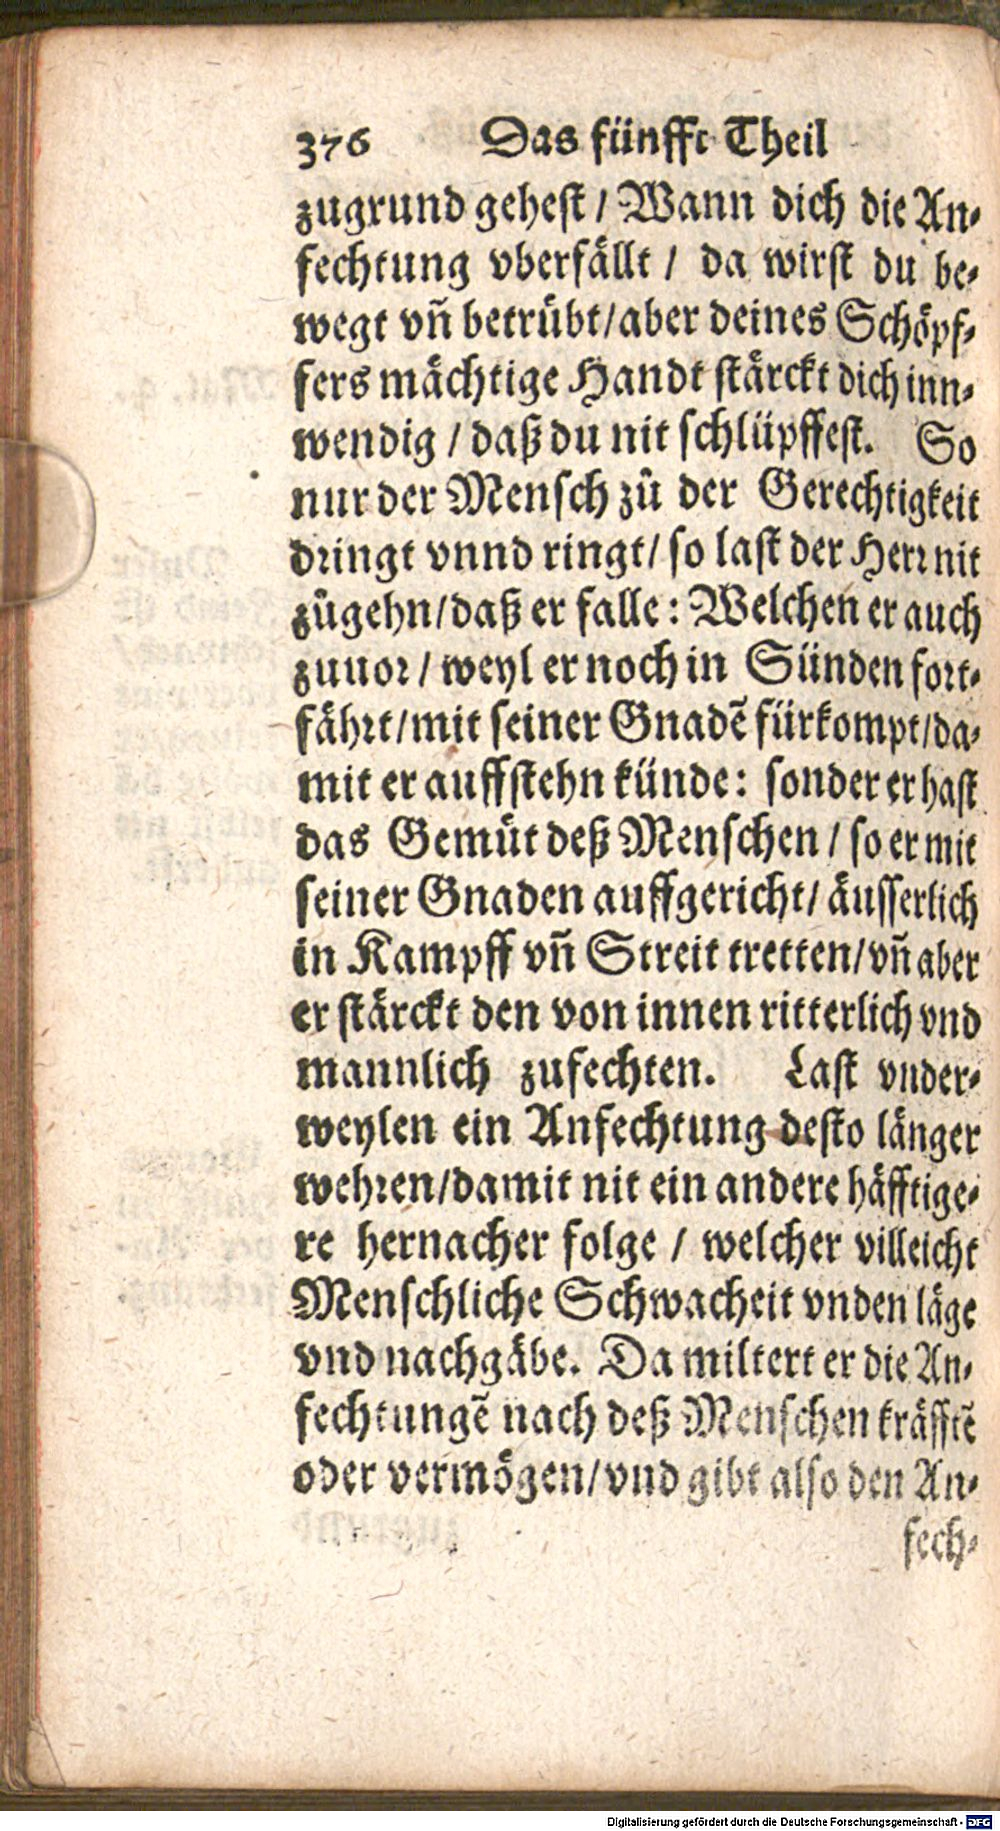 376 Das fünfft Theil
zugrund gehest / Wann dich die An-
fechtung vberfällt / da wirst du be-
wegt vñ betrübt/aber deines Schöpf-
fers mächtige Handt stärckt dich inn-
wendig / daß du nit schlüpffest. So
nur der Mensch zů der Gerechtigkeit
dringt vnnd ringt/ so last der Herr nit
zůgehn/daß er falle: Welchen er auch
zuuor / weyl er noch in Sünden fort-
fährt/mit seiner Gnadẽ fürkompt/da-
mit er auffstehn künde: sonder er hast
das Gemüt deß Menschen / so er mit
seiner Gnaden auffgericht/ äusserlich
in Kampff vñ Streit tretten/vñ aber
er stärckt den von innen ritterlich vnd
mannlich zufechten. Last vnder-
weylen ein Anfechtung desto länger
wehren/damit nit ein andere häfftige-
re hernacher folge / welcher villeicht
Menschliche Schwacheit vnden läge
vnd nachgäbe. Da miltert er die An-
fechtungẽ nach deß Menschen kräfftẽ
oder vermögen/vnd gibt also den An-
fech-
Digitalisierung gefördert durch die Deutsche Forschungsgemeinschaft - DFG